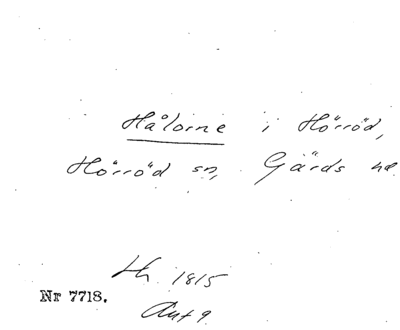 Hålorne i Hörröd,
Hörröd sn, Gärds hd
Lh 1815
Nr 7718.
Ant 9